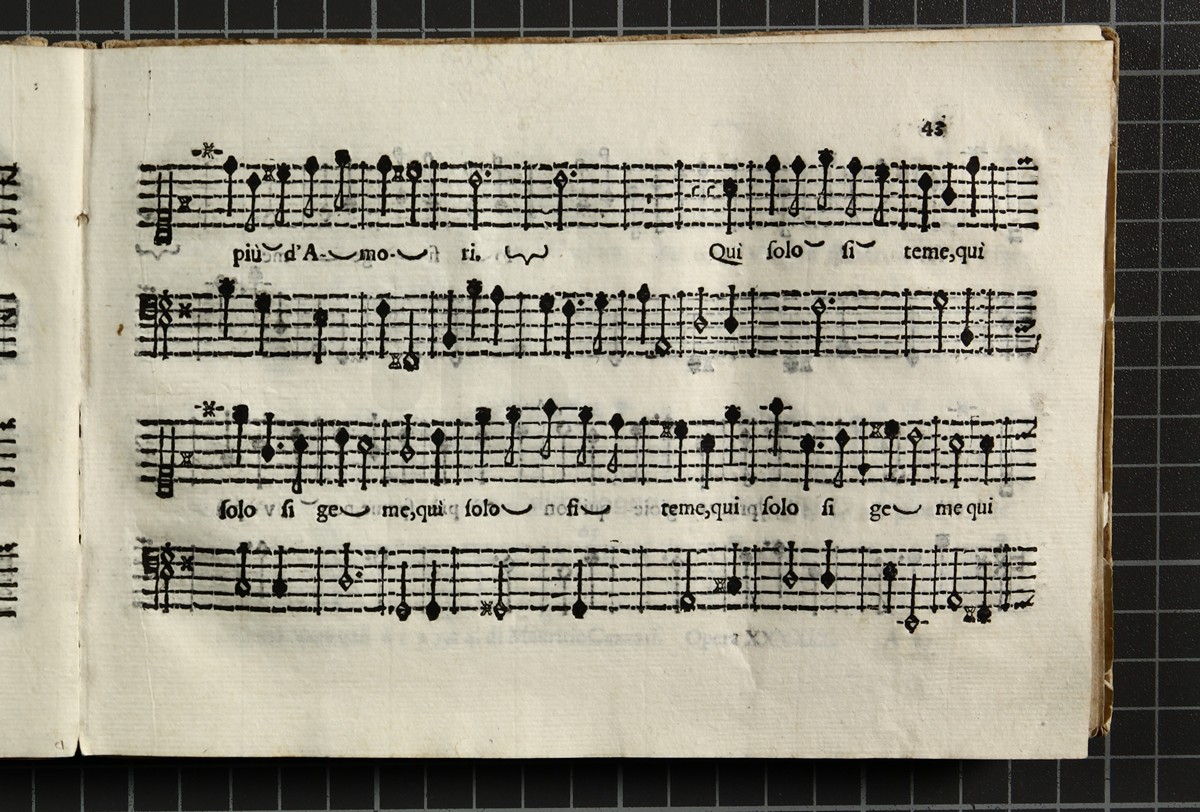 43
più d'A- mo- ri. Quì ſolo ſi teme,quì
ſolo ſi ge me,quì ſolo ſi teme,quì ſolo ſi ge me quì